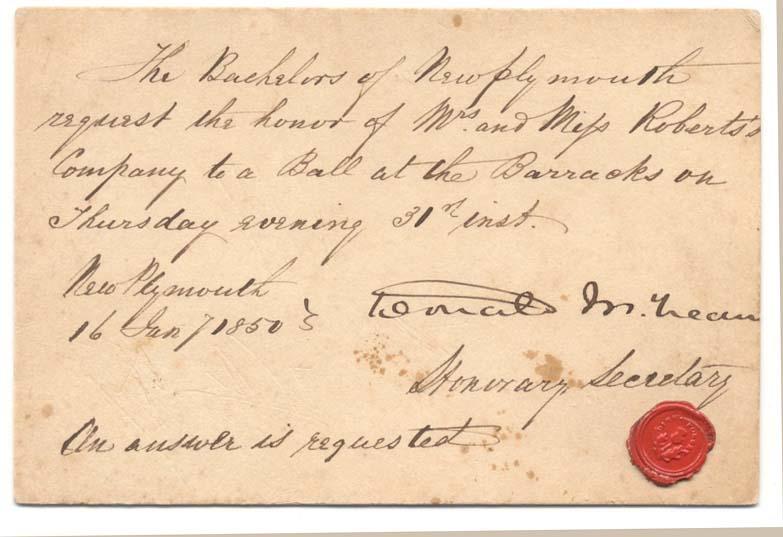 The Bachelors of New Plymouth
request the honor of Mrs. and Miss Roberts's
Company to a Ball at the Barracks on
Thursday evening 31st inst.
New Plymouth
16 Jany 1850
Donald McLean
Honorary Secretary
An answer is requested